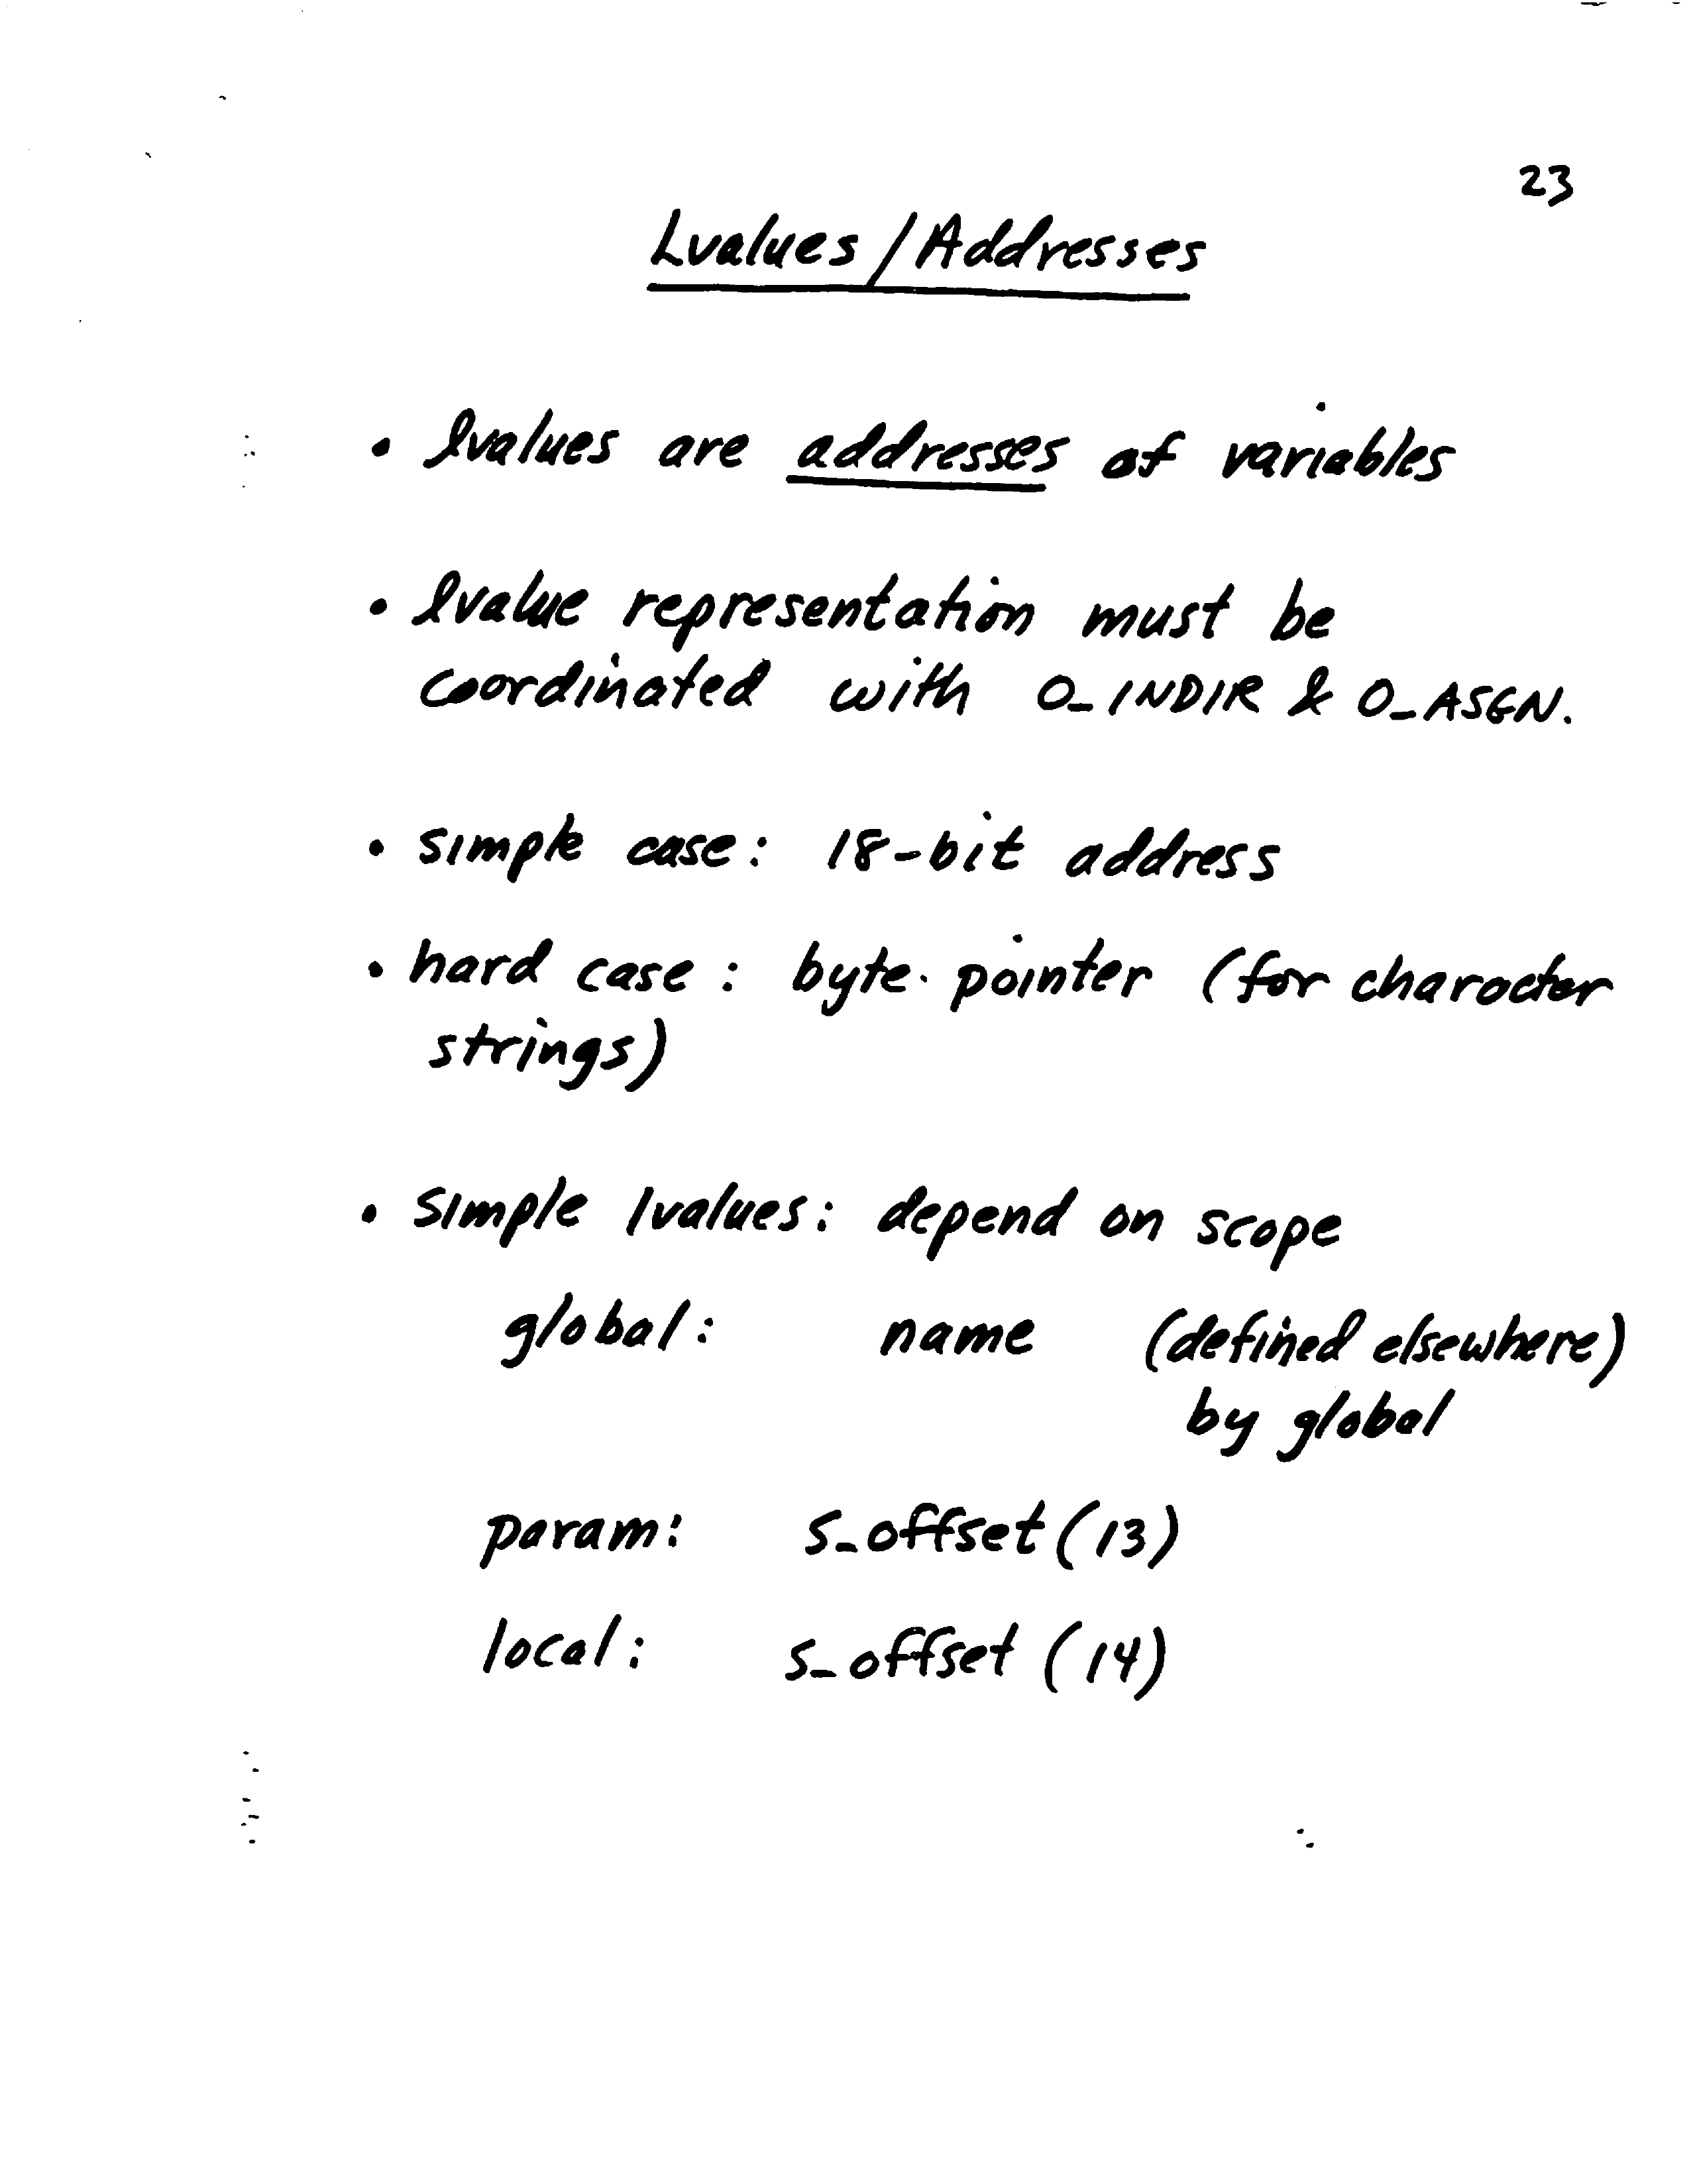 23
Lvalues/Addresses
• lvalues are addresses of variables
• lvalue representation must be
coordinated with O_INDIR & O_ASGN.
• simple case: 18-bit address
• hard case: byte-pointer (for character
strings)
• simple lvalues: depend on scope
global: name (defined elsewhere)
by global
param: s_offset(13)
local: s_offset (14)